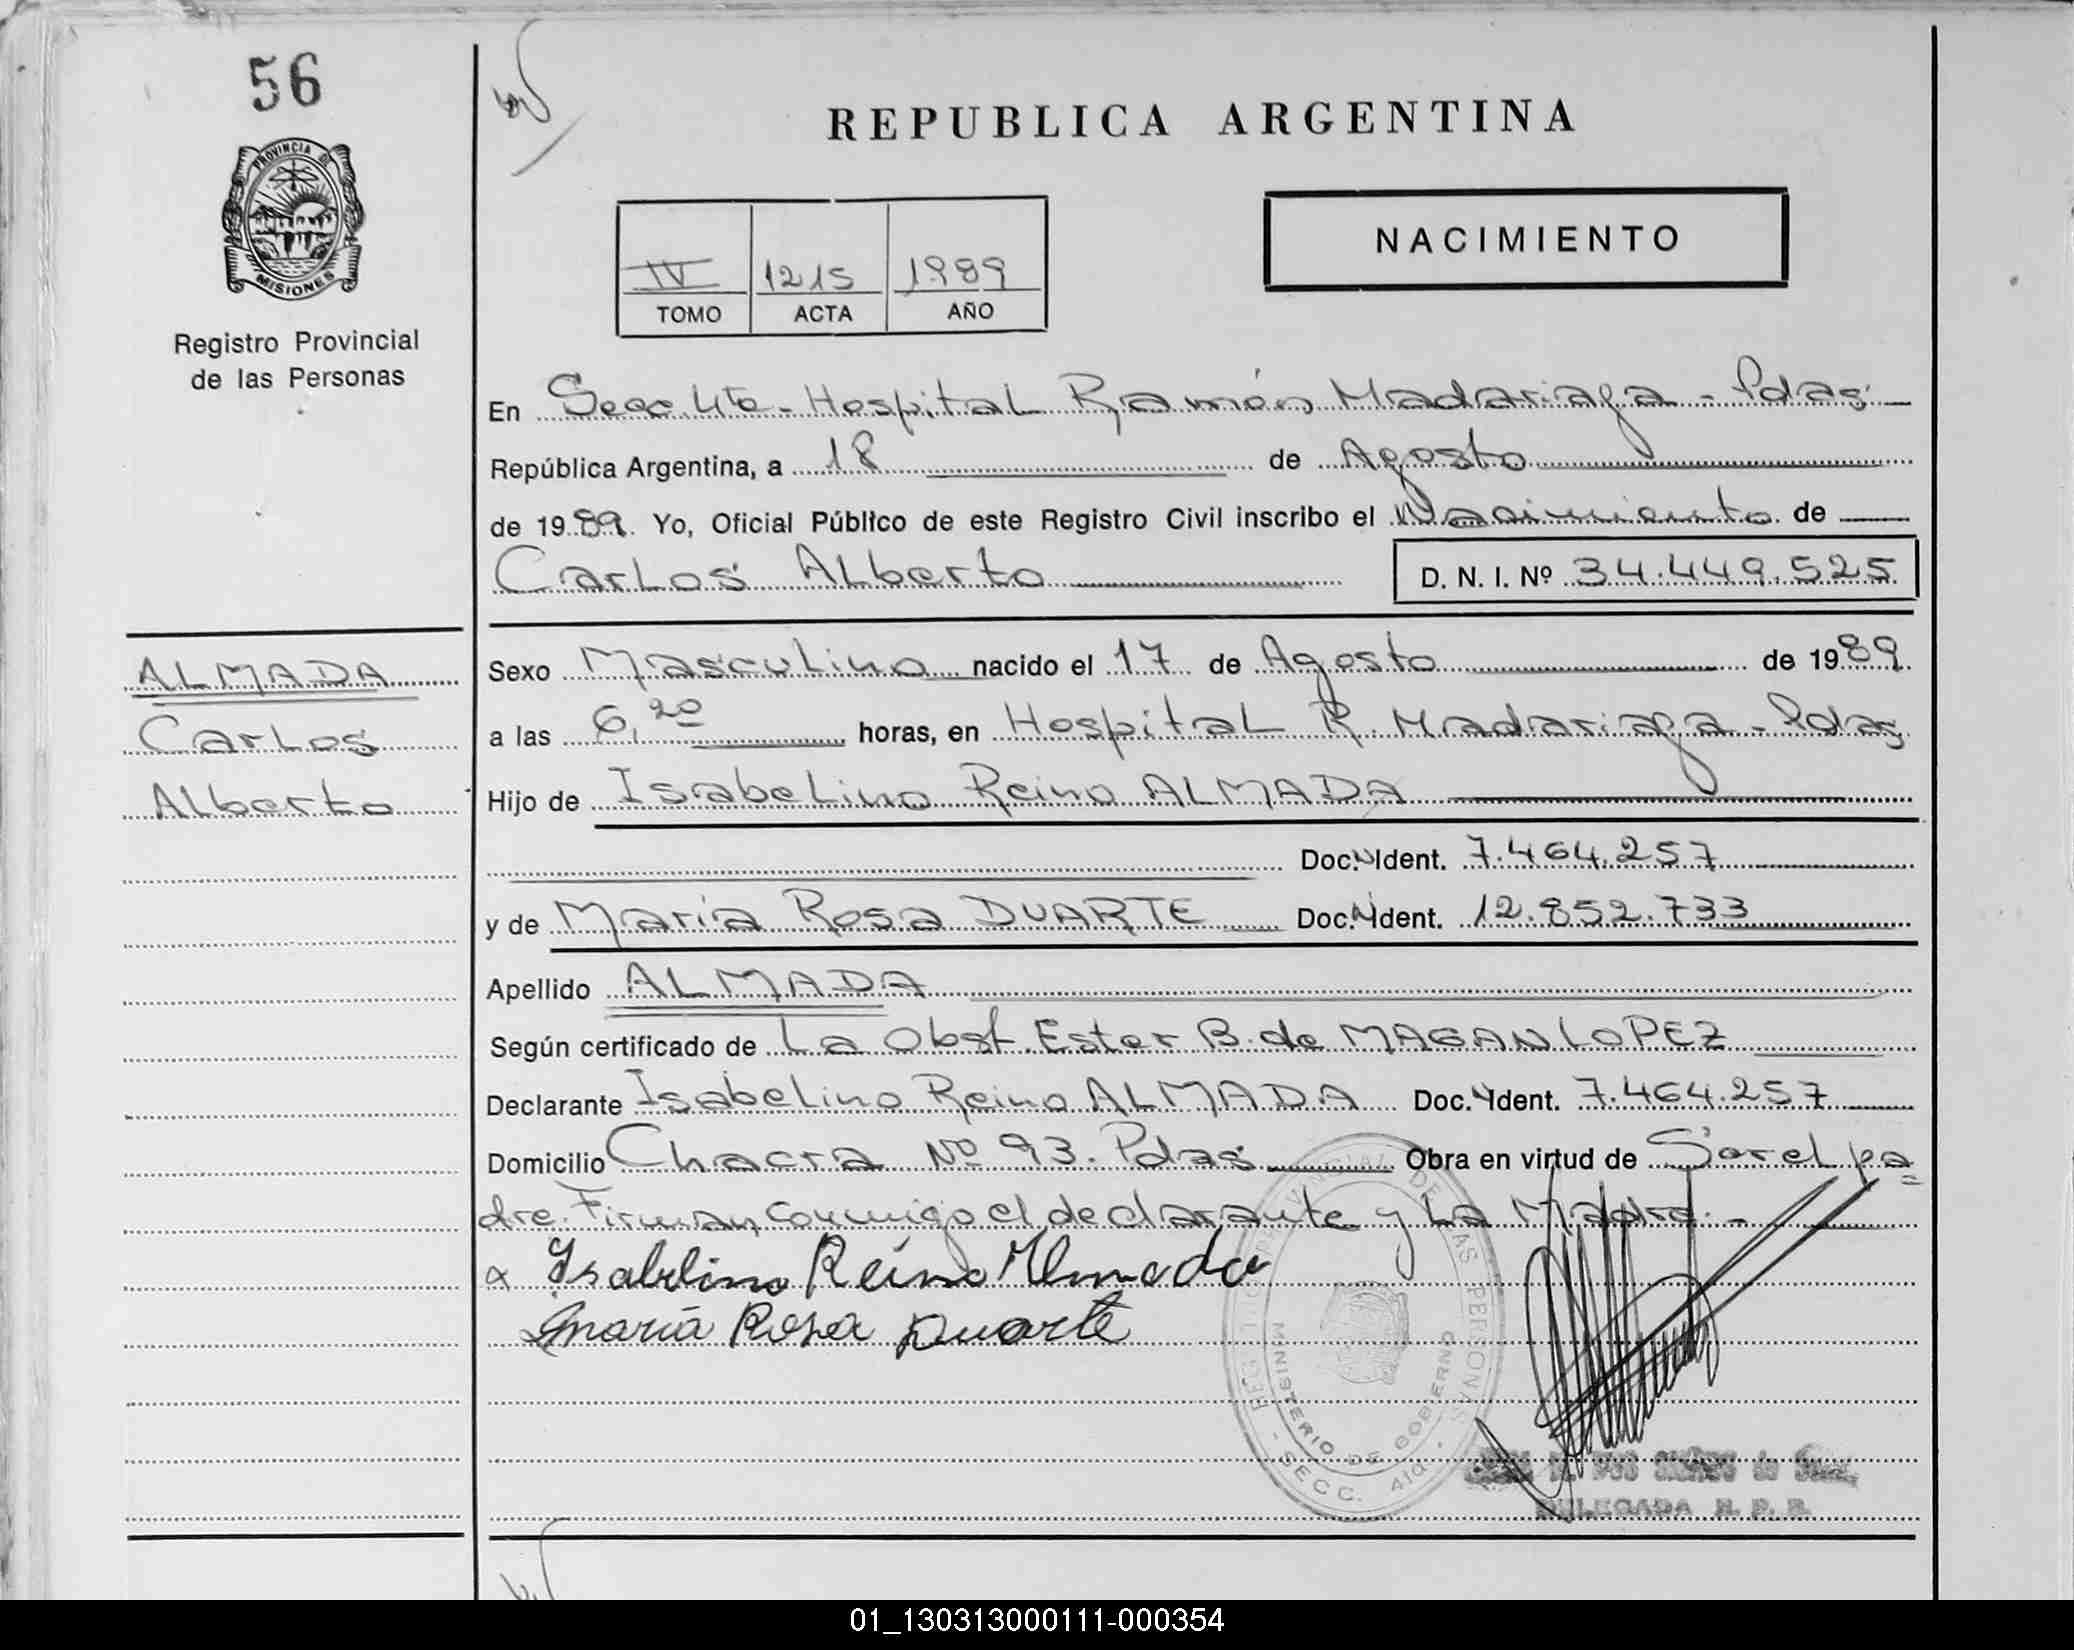 56
PROVINCIA DE
MISIONES
Registro Provincial
de las Personas
REPUBLICA ARGENTINA
NACIMIENTO
IV 1215 1989
TOMO ACTA AÑO
En Secc 4ta - Hospital Ramón Madariaga - Pdas
República Argentina, a 18 de Agosto
de 1989. Yo, Oficial Público de este Registro Civil inscribo el Nacimiento de
Carlos Alberto D. N. I. Nº 34.449.525
ALMADA
Carlos
Alberto
Sexo Masculino nacido el 17 de Agosto de 1989
a las 6,20 horas, en Hospital R. Madariaga - Pdas
Hijo de Isabelino Reino ALMADA
Doc.NIdent. 7.464.257
y de María Rosa DUARTE Doc.NIdent. 12.852.733
Apellido ALMADA
Según certificado de La Obst. Ester B. de MAGAN LOPEZ
Declarante Isabelino Reino ALMADA Doc. Ident. 7.464.257
Domicilio Chacra Nº 93. Pdas Obra en virtud de Ser el pa
dre. Firman conmigo el declarante y La Madre. -
Isabelino Reino Almada
María Rosa Duarte
REG. PROVINCIAL DE LAS PERSONAS
MINISTERIO DE GOBIERNO
- SECC. 4ta. -
DELEGADA R. P. P.
01_130313000111-000354